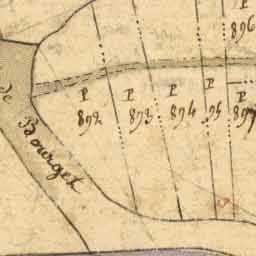 P
896
de
Bourget
P
892
P
893
P
894
P
95
P
897